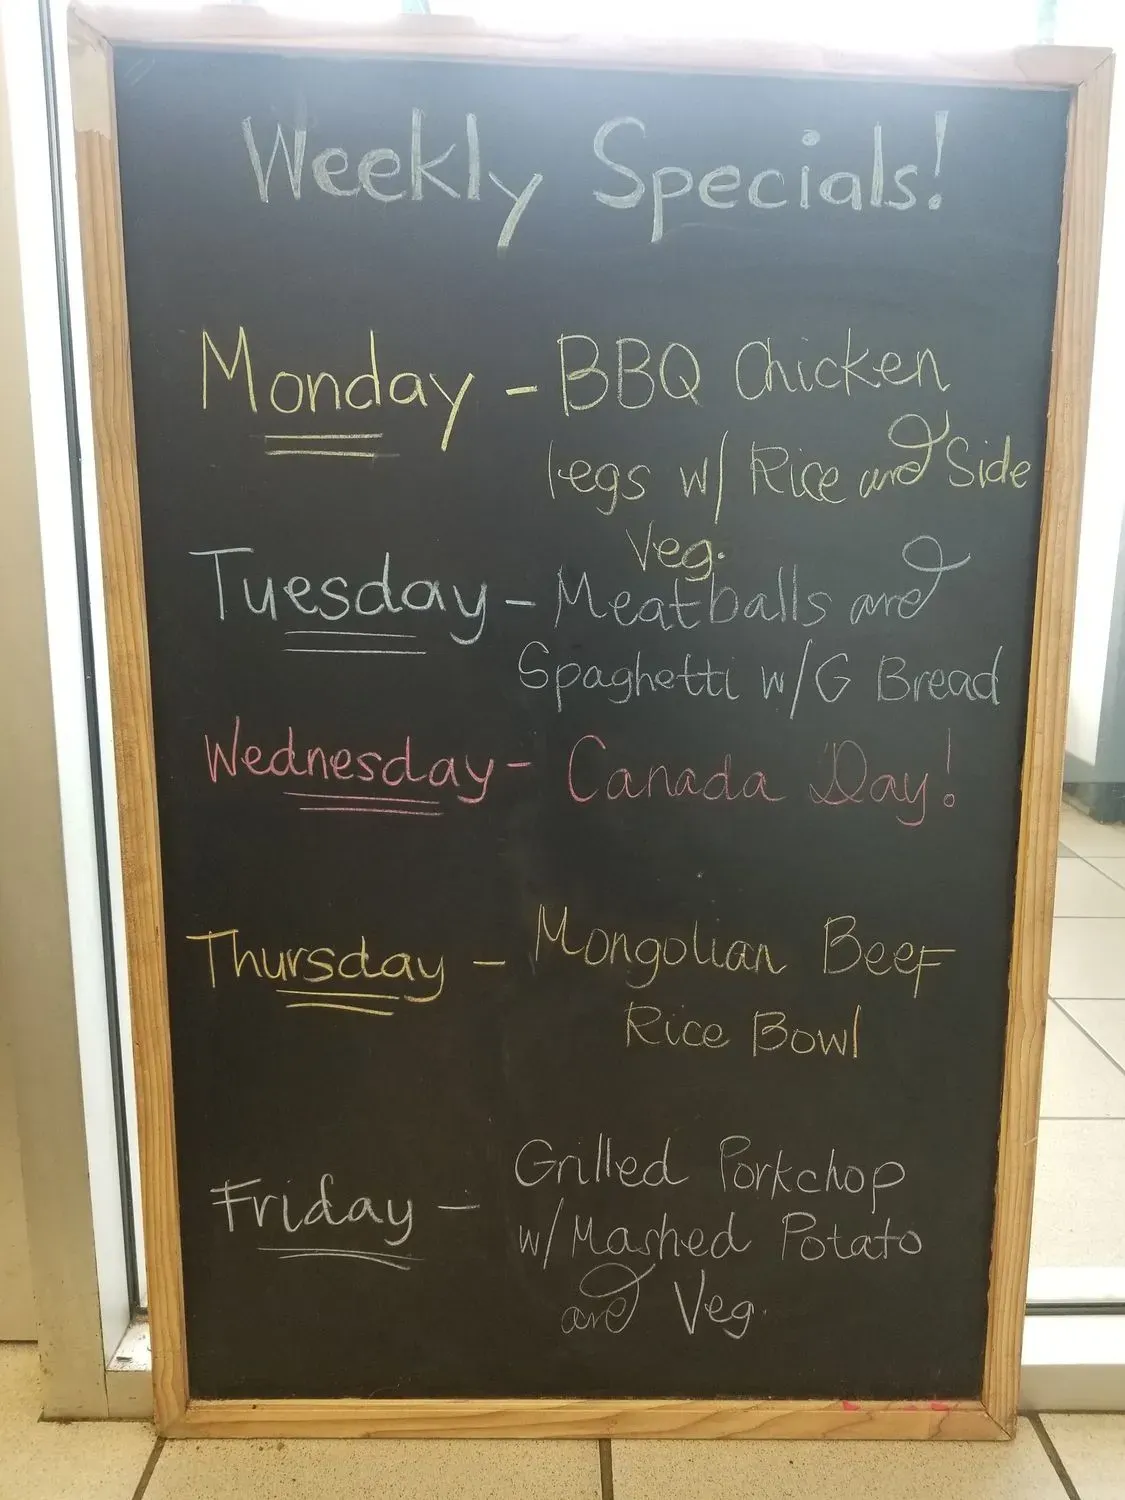 Weekly Specials!
Monday - BBQ Chicken
legs w/ Rice and Side
Veg.
Tuesday - Meatballs and
Spaghetti w/G Bread
Wednesday - Canada Day!
Thursday - Mongolian Beef
Rice Bowl
Friday - Grilled Porkchop
w/ Mashed Potato
and Veg.